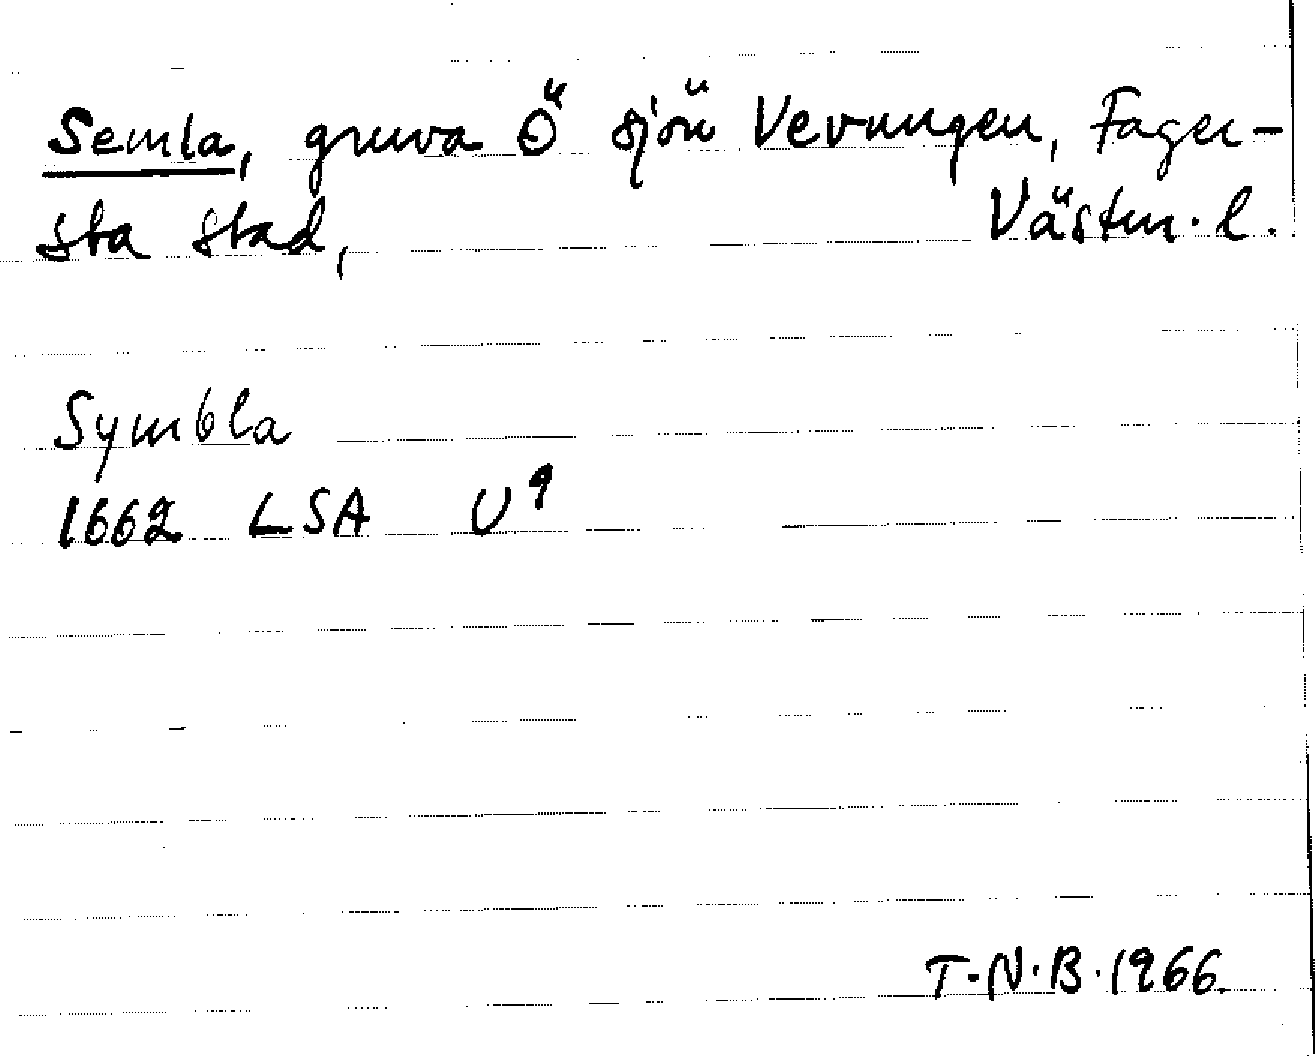 Semla, gruva Ö sjön Vevungen, Fager-
sta stad, Västm. l.
Symbla
1662 LSA U9
T.N.B. 1966.